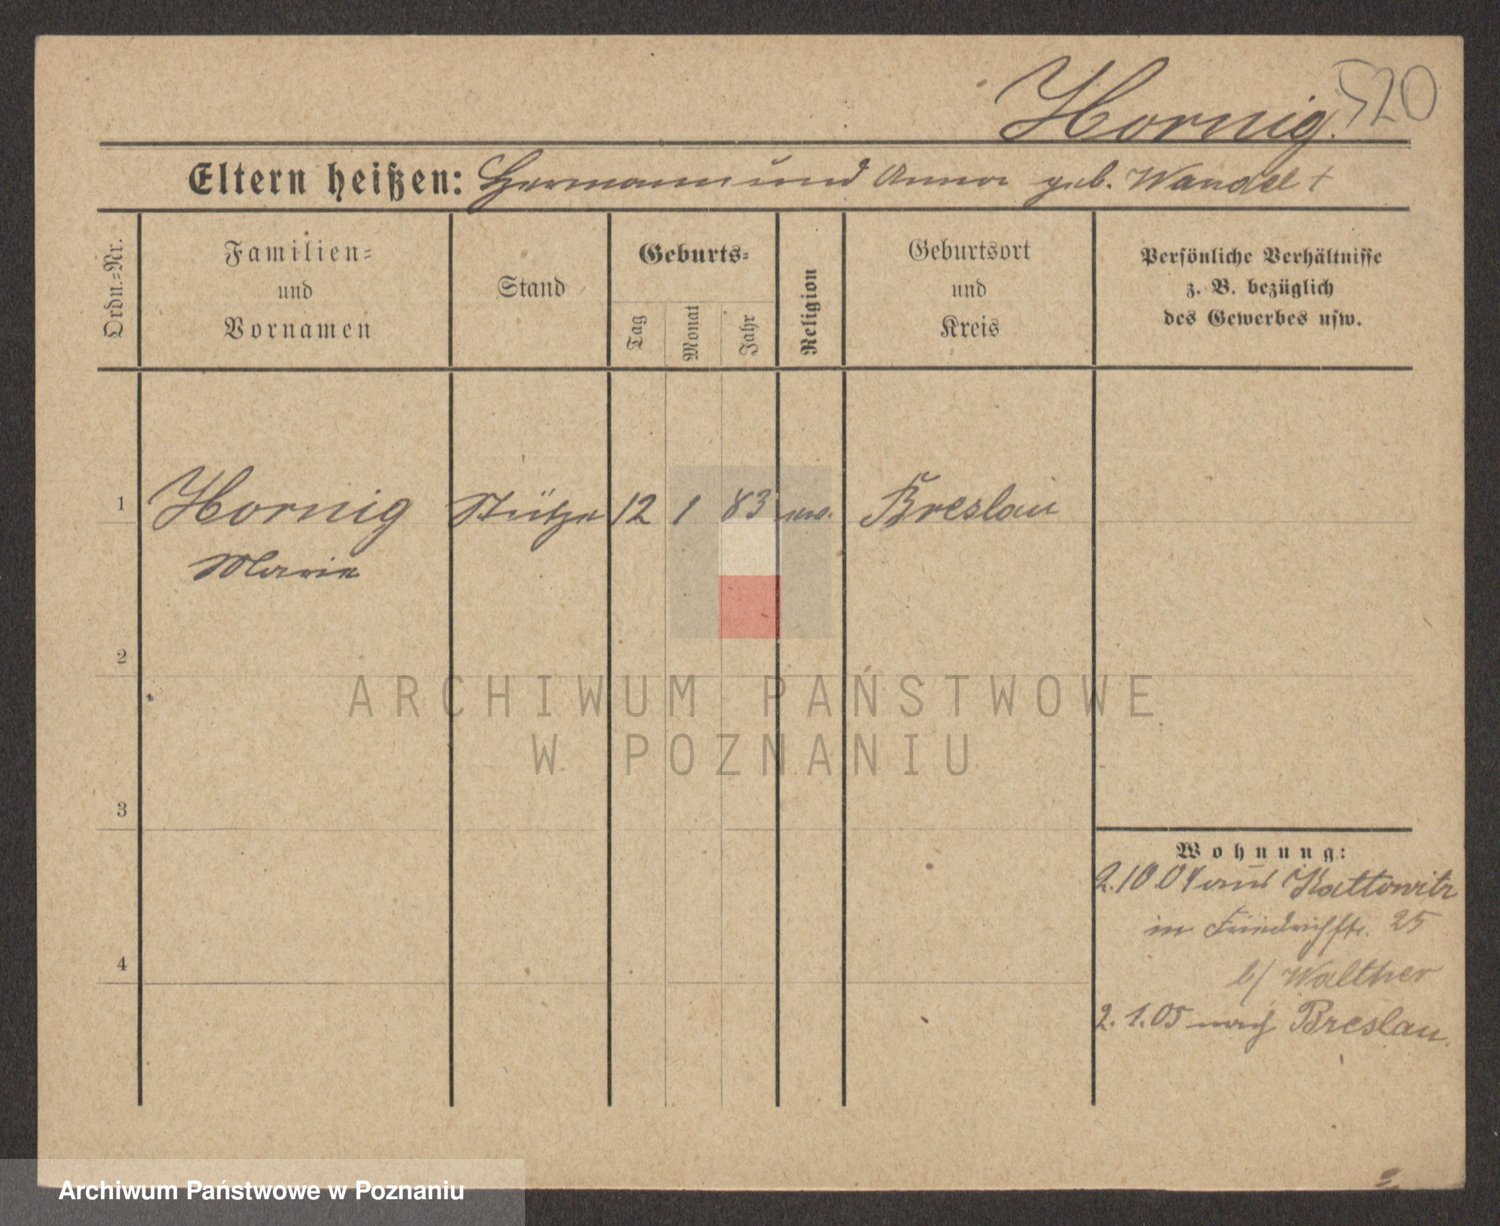 Hornig. 520
Eltern heißen: Hermann und Anna geb. Wandel †
Ordn.=Nr.
Familien=
und
Vornamen
Stand
Geburts=
Tag
Monat
Jahr
Religion
Geburtsort
und
Kreis
Persönliche Verhältnisse
z. B. bezüglich
des Gewerbes usw.
1 Hornig Stütze 12 1 83 ev. Breslau
Marie
2
ARCHIWUM PAŃSTWOWE
W POZNANIU
3
Wohnung:
2.10.04 aus Kattowitz
in Friedrichstr. 25
b/ Walther
4
2.1.05 nach Breslau.
Archiwum Państwowe w Poznaniu